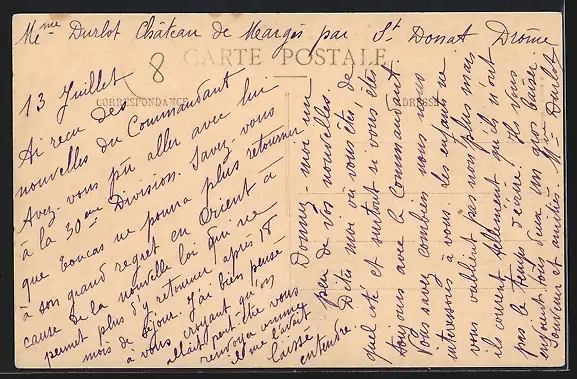 Mme Durlot Château de Margès par St Donat Drome
CARTE POSTALE
CORRESPONDANCE
ADRESSE
8
13 Juillet
Ai reçu des
nouvelles du Commandant
Avez-vous pu aller avec lui
à la 30eme Division. Savez-vous
que ne pourra plus retourner
à son grand regret en Orient à
cause de la nouvelle loi qui ne
permet plus d'y retourner après 18
mois de séjour. J'ai bien pensé
à vous croyant qu'on
allait peut-être vous
renvoyer
il me l'avait
laissé
entendre
Donnez-moi un
peu de vos nouvelles.
Dites moi où vous êtes, de
quel côté et surtout si vous êtes
toujours avec le Commandant.
Vous savez combien nous nous
intéressons à vous. Les enfants ne
vous oublient pas non plus mais
ils courent tellement qu'ils n'ont
pas le temps d'écrire. Ils vous
envoient tous deux un gros baiser.
Souvenir et amitiés Mme Durlot